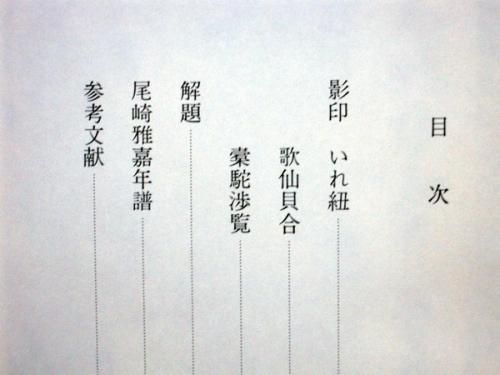 目次
影印 いれ紐
歌仙貝合
橐駝渉覧
解題
尾崎雅嘉年譜
参考文献